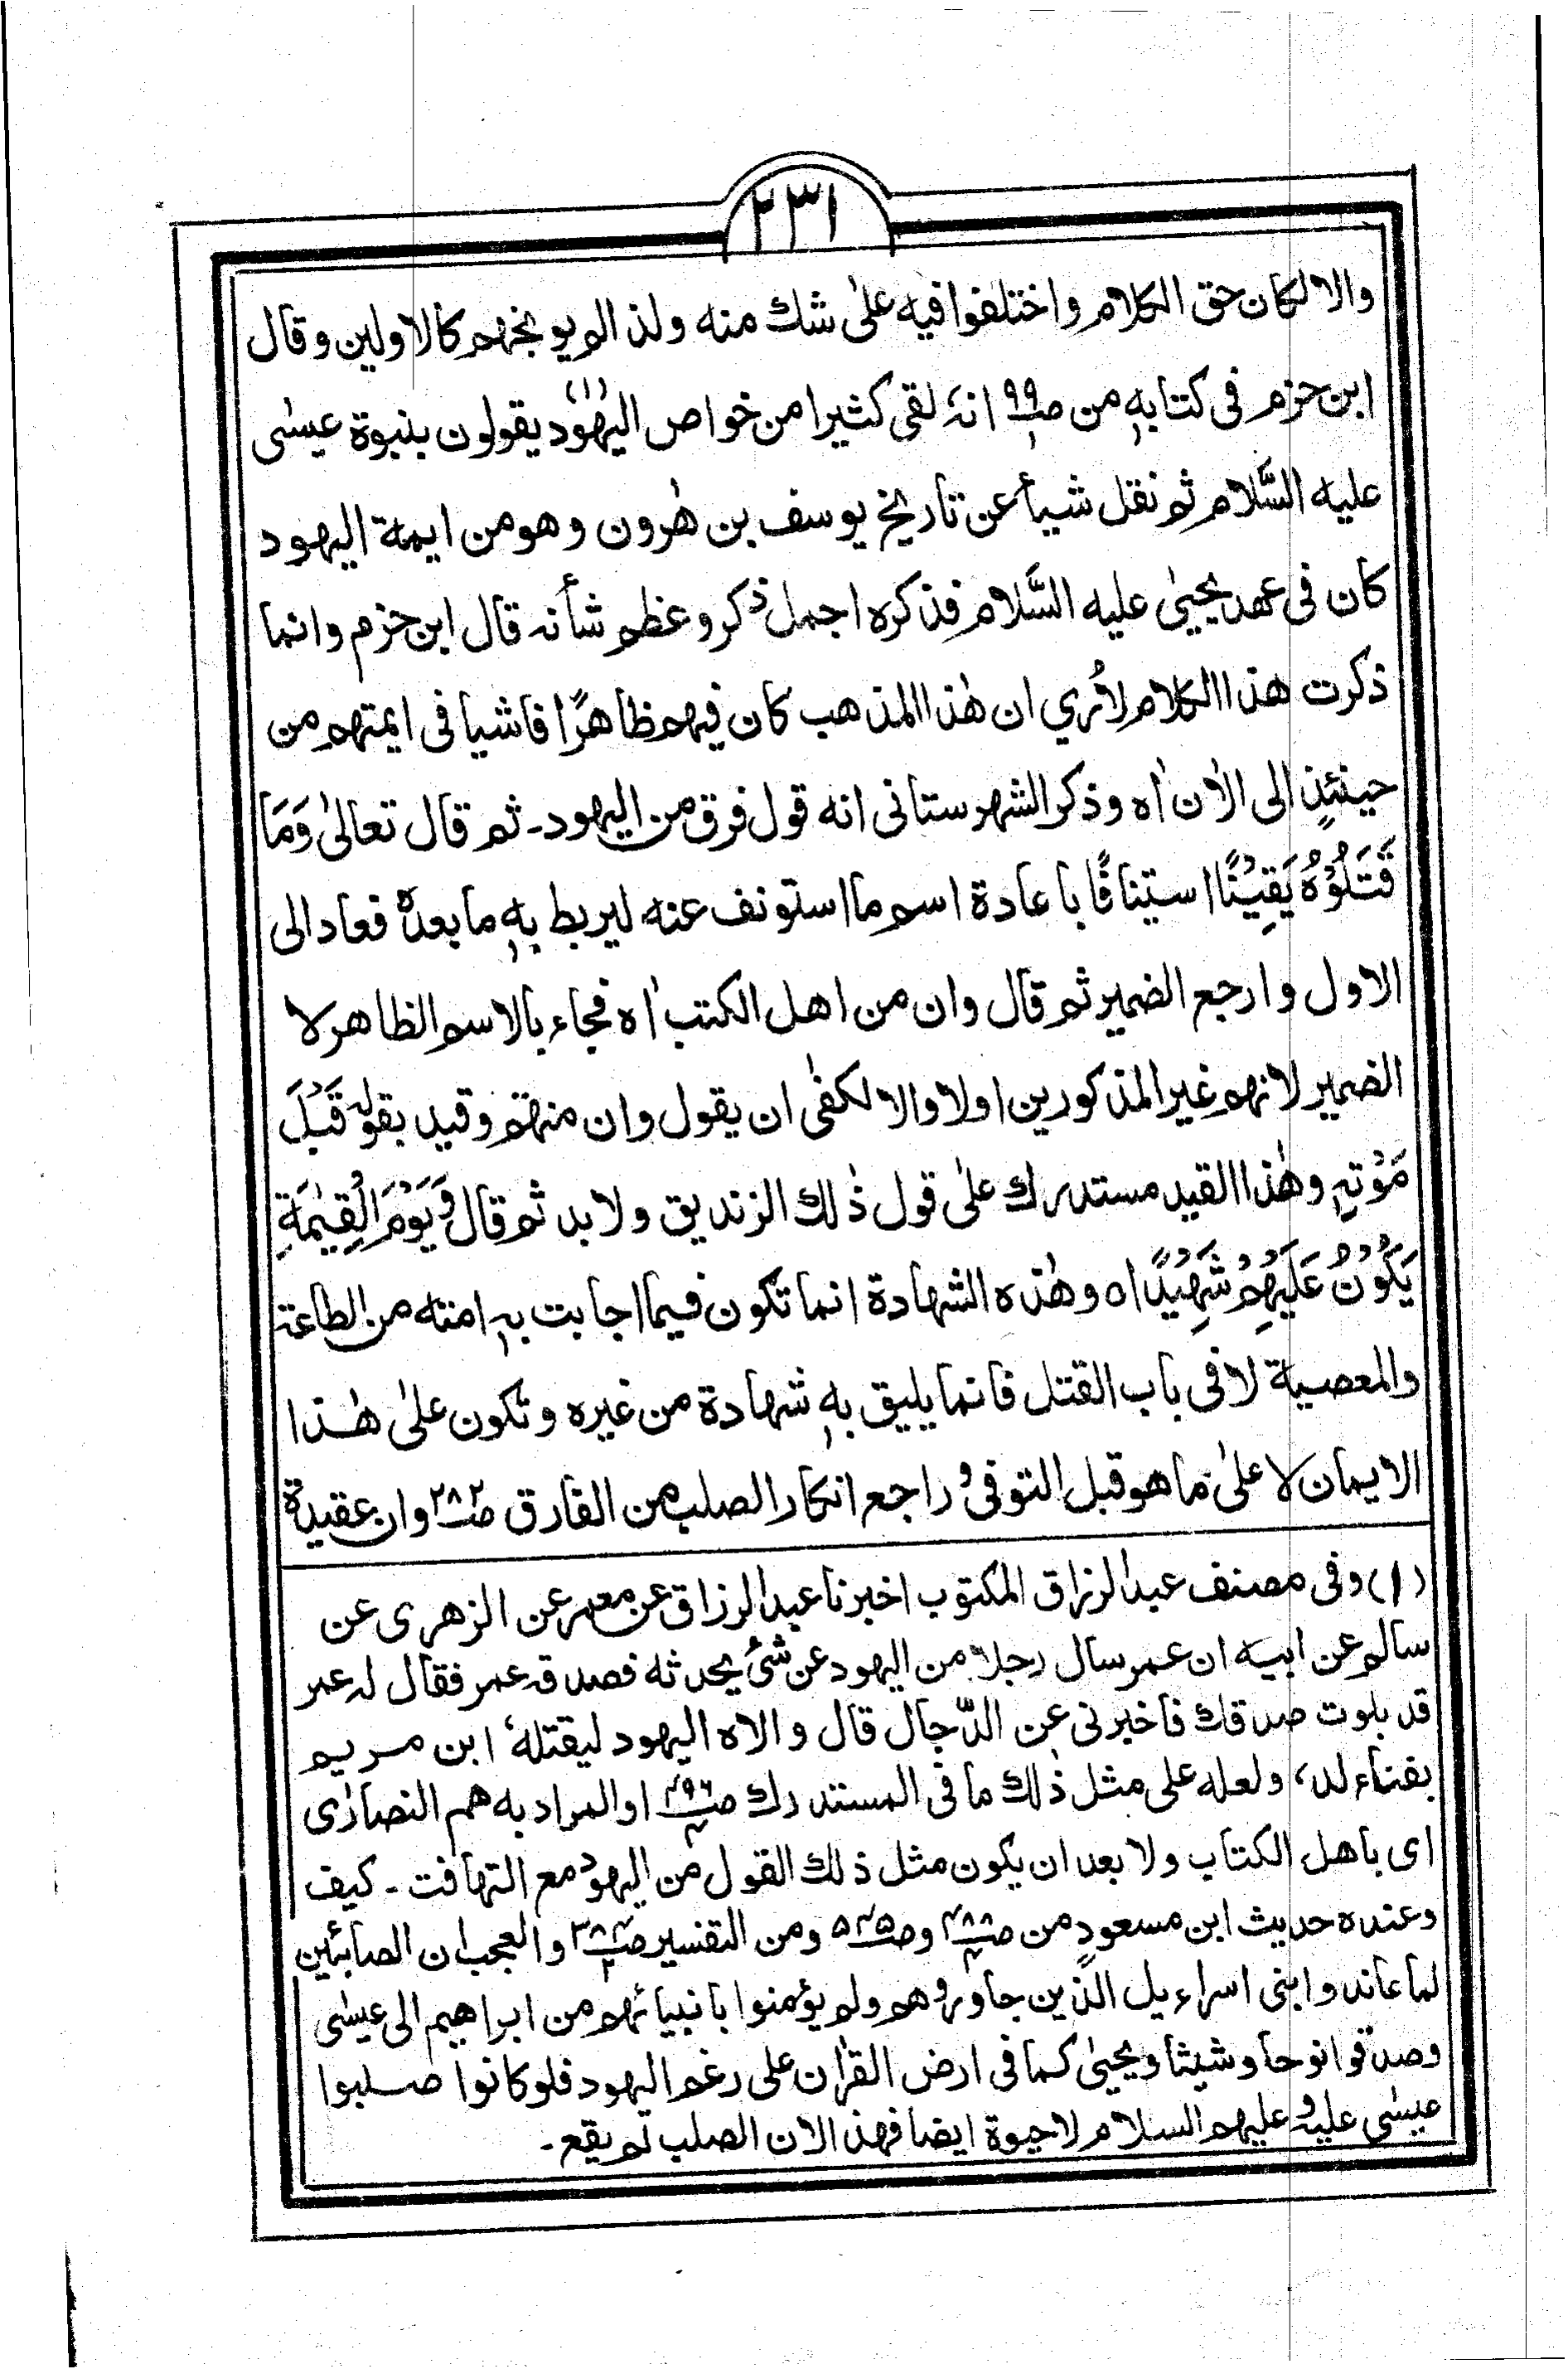 ٢٣١
والا لكان حق الكلام واختلفوا فيه علىٰ شك منه ولذا لم يوبخهم كالاولين وقال
ابن حزم فى كتابه من ص٩٩ انهٗ لقى كثيرا من خواص اليهود(١) يقولون بنبوة عيسٰى
عليه السَّلام ثم نقل شيأ عن تاريخ يوسف بن هٰرون وهو من ايمة اليهود
كان فى عهد يحيىٰ عليه السَّلام فذكره اجمل ذكر وعظم شأنه قال ابن حزم وانما
ذكرت هذا الكلام لأري ان هٰذا المذهب كان فيهم ظاهرًا فاشيا فى ايمتهم من
حينئذٍ الى الاٰن اٰه وذكر الشهرستانى انه قول فرق من اليهود۔ ثم قال تعالىٰ وَمَا
قَتَلُوْهُ يَقِيْنًا استينافًا باعادة اسم ما استونف عنه ليربط به ما بعدهٗ فعاد الى
الاول وارجع الضمير ثم قال وان من اهل الكتٰب اٰه فجاء بالاسم الظاهر لا
الضمير لانهم غير المذكورين اولا والا لكفٰى ان يقول وان منهم وقيد بقوله قَبْلَ
مَوْتِهٖ وهٰذا القيد مستدرك علىٰ قول ذٰلك الزنديق ولا بد ثم قال وَيَوْمَ الْقِيٰمَةِ
يَكُوْنُ عَلَيْهِمْ شَهِيْدًا اه وهٰذه الشهادة انما تكون فيما اجابت به امته من الطاعة
والمعصية لا فى باب القتل فانما يليق به شهادة من غيره وتكون علىٰ هٰذا
الايمان لا علىٰ ما هو قبل التوفى وراجع انكار الصلب من الفارق ص٢٨٢ وان عقيدة
(١) وفى مصنف عبد الرزاق المكتوب اخبرنا عبد الرزاق عن معمر عن الزهرى عن
سالم عن ابيه ان عمر سال رجلا من اليهود عن شئ يحدثه فصدقه عمر فقال له عمر
قد بلوت صدقك فاخبرنى عن الدّجال قال والاه اليهود ليقتلهٗ ابن مريم
بفناء لد، ولعله على مثل ذٰلك ما فى المستدرك او المراد به هم النصارٰى
اى باهل الكتاب ولا بعد ان يكون مثل ذلك القول من اليهود مع التهافت۔ كيف
وعنده حديث ابن مسعود من ص٤٨٨ وص٥٤٥ ومن التفسير ص٣٨٤ والعجب ان الصابئين
لما عاندوا بنى اسراءيل الذين جاوروهم ولم يؤمنوا بانبيائهم من ابراهيم الى عيسٰى
وصدقوا نوحا وشيثا ويحيىٰ كما فى ارض القرٰان على رغم اليهود فلو كانوا صلبوا
عيسٰى عليه وعليهم السلام لاحيوة ايضا فهذا لان الصلب لم يقع۔